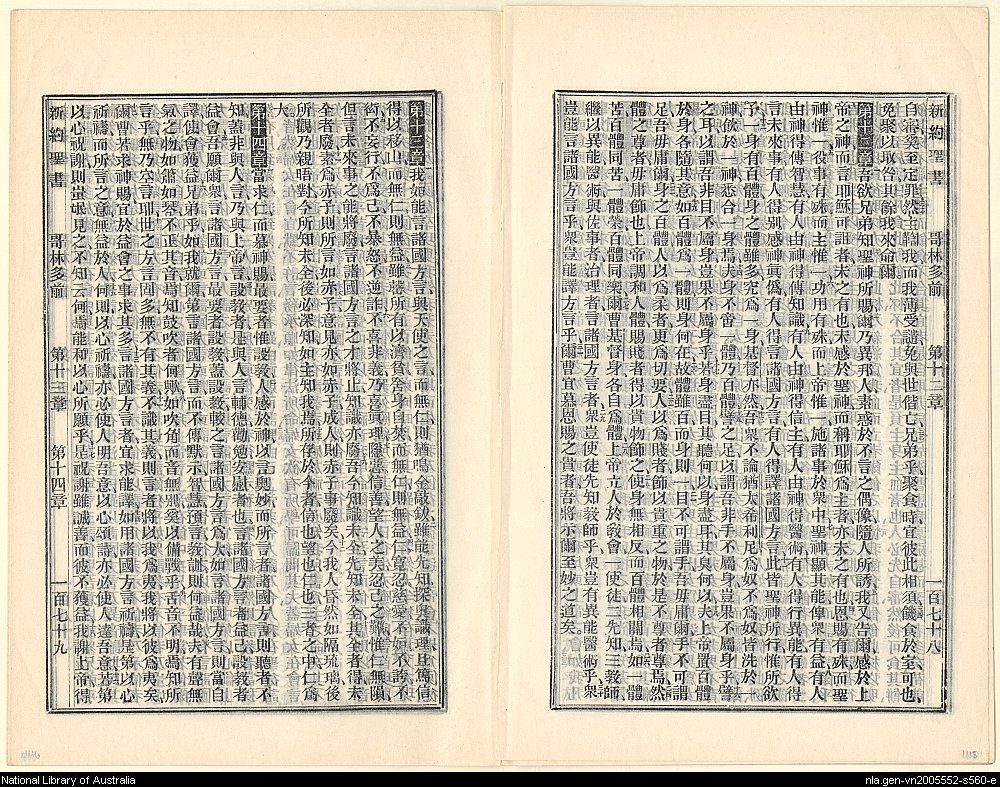 新約聖書 哥林多前 第十二章 一百七十八
自審矣至定罪然主鞫我而我薄受譴免與世偕亡兄弟乎聚食時宜彼此相須饑食於室可也
免聚以取咎其餘我來命爾
第十二章吾欲兄弟知聖神所賜爾乃異邦人素惑於不言之偶像隨人所誘我又告爾感於上
帝之神而言耶穌可詛者未之有也未感於聖神而稱耶穌為主者亦未之有也恩賜有殊而聖
神惟一役事有殊而主惟一功用有殊而上帝惟一施諸事於眾中聖神顯其能俾眾有益有人
由神得傳智慧有人由神得傳知識有人由神得信主有人由神得醫術有人得行異能有人得
言未來事有人得別感神真偽有人得言諸國方言有人得譯諸國方言此皆聖神所行惟所欲
予一身有百體身之體雖多究為一身基督亦然吾眾不論猶太希利尼為奴不為奴皆洗於一
神飲於一神悉合一身焉夫身不啻一體乃百體譬之足以謂吾非手不屬身豈果不屬身乎譬
之耳以謂吾非目不屬身豈果不屬身乎若身盡目其聽何以身盡耳其臭何以夫上帝置百體
於身各隨其意如百體為一體則身何在故體雖百而身則一目不可謂手吾毋庸爾手不可謂
足吾毋庸爾身之百體人以為柔者更為切要人以為賤者飾以貴重之物於是不尊者尊焉然
體之尊者毋庸飾也上帝調和人體賜賤者得以貴物飾之使身無相反而百體相關焉如一體
苦百體同苦一體榮百體同樂爾曹基督身各自為體上帝立人於教會一使徒二先知三教師
繼以異能醫術與佐事者治理者言諸國方言者眾豈使徒先知教師乎眾豈有異能醫術乎眾
豈能言諸國方言乎眾豈能譯方言乎爾曹宜慕恩賜之貴者吾將示爾至妙之道矣
第十三章我如能言諸國方言與天使之言而無仁則猶鳴金敲鈸雖能先知探奧識理且篤信
得以移山而無仁則無益雖罄所有以濟貧舍身自焚而無仁則無益仁寬忍慈愛不妒不誇不
衒不妄行不為己不暴怒不逆詐不喜非義乃喜真理隱惡信善望人之美忍己之難惟仁無隕
但言未來事之能將廢言諸國方言之才將止知識亦廢吾今知識未全先知未全其全者得未
全者廢素為赤子則所言如赤子意見亦如赤子成人則赤子事廢矣今我人昏然如隔琉璃後
所觀乃親晤對今所知未全後必深知如主知我焉所存於今者信也望也仁也三者之中仁為
大
第十四章當求仁而慕神賜最要者惟設教人感於神以言奧妙而所言者諸國方言則聽者不
知蓋非與人言乃與上帝言設教者是與人言輔德勸勉安慰者也言諸國方言者益己設教者
益會吾願爾眾言諸國方言最要者設教蓋設教較之言諸國方言為大如言諸國方言則當自
譯使會獲益兄弟乎如我就爾第言諸國方言而不傳默示智慧預言教訓則何益哉夫有聲無
氣之物如簫如琴不正其音焉知鼓吹者何歟如吹角而音無別奚以備戰乎舌音不明焉知所
言乎無乃空言耶世之方言固多無不有其義不識其義則言者將以我為夷我將以彼為夷矣
爾曹若求神賜宜於益會之事求其多言諸國方言者宜求能譯如用諸國方言祈禱是第以心
祈禱而所言之意無益於人何則以心祈禱亦必使人明吾意以心頌詩亦必使人達吾意若第
以心祝謝則蚩氓見之不知云何焉能和以心所願乎是祝謝雖誠善而彼不獲益我謝上帝得
新約聖書 哥林多前 第十三章 第十四章 一百七十九
National Library of Australia
nla.gen-vn2005552-s560-e